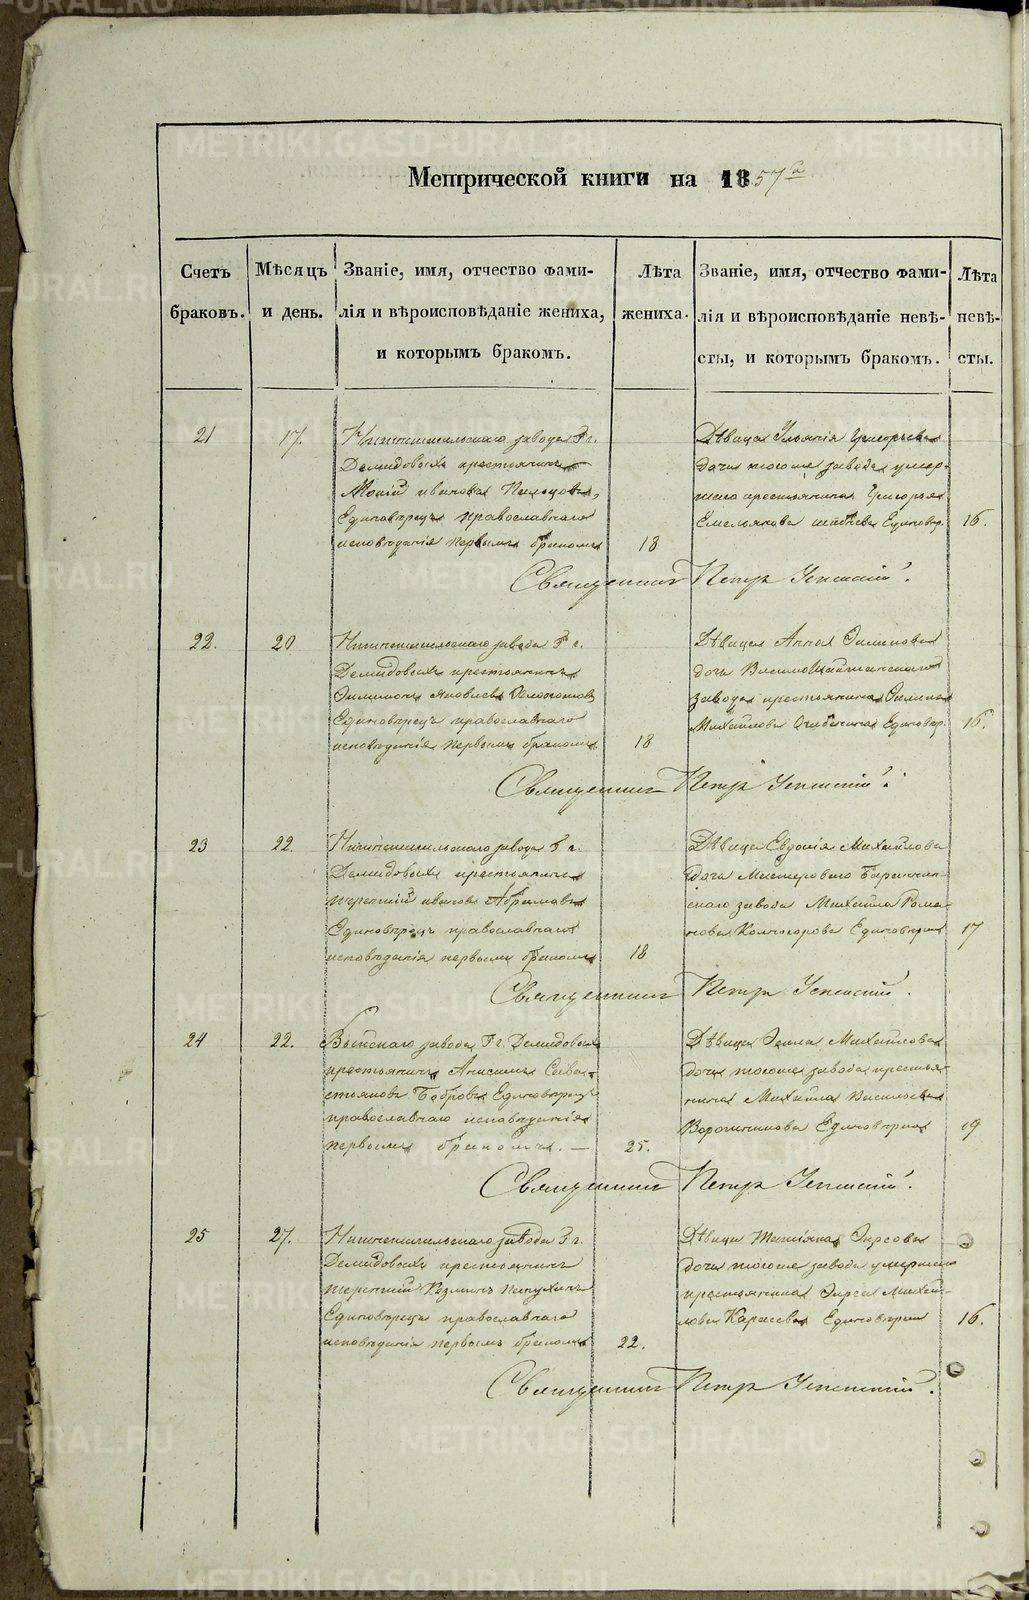 Метрической книги на 1857й
Счетъ браковъ.
Мѣсяцъ и день.
Званіе, имя, отчество фами-
лія и вѣроисповѣданіе жениха,
и которымъ бракомъ.
Лѣта жениха.
Званіе, имя, отчество фами-
лія и вѣроисповѣданіе невѣ-
сты, и которымъ бракомъ.
Лѣта невѣ-
сты.
21
17.
Нижнетагильскаго завода Гг.
Демидовыхъ крестьянинъ
Ивановъ
Единовѣрецъ православнаго
исповѣданія первымъ бракомъ
18
Дѣвица Григорьева
дочь тогоже завода умер-
шаго крестьянина Григорья
Емельянова Единовѣр.
16.
Священникъ Петръ Успенскій.
22.
20
Нижнетагильскаго завода Гг.
Демидовыхъ крестьянинъ
Филимонъ Яковлевъ
Единовѣрецъ православнаго
исповѣданія первымъ бракомъ
18
Дѣвица Анна Филипова
дочь Висимошайтанскаго
завода крестьянина Филипа
Михайлова Единовѣр.
16.
Священникъ Петръ Успенскій.
23
22.
Нижнетагильскаго завода Гг.
Демидовыхъ крестьянинъ
Терентій Ивановъ Абрамовъ
Единовѣрецъ православнаго
исповѣданія первымъ бракомъ
18
Дѣвица Евдокія Михайлова
дочь Мастероваго Баранчин-
скаго завода Михайла Рома-
нова Колногорова Единовѣрка
17
Священникъ Петръ Успенскій.
24
22.
Выйскаго завода Гг. Демидовыхъ
крестьянинъ Анисимъ Сева-
стьяновъ Бобровъ Единовѣрецъ
православнаго исповѣданія
первымъ бракомъ. —
25.
Дѣвица Фекла Михайлова
дочь тогоже завода крестья-
нина Михайла Васильева
Единовѣрка
19
Священникъ Петръ Успенскій.
25
27.
Нижнетагильскаго завода Гг.
Демидовыхъ крестьянинъ
Терентій Козминъ
Единовѣрецъ православнаго
исповѣданія первымъ бракомъ
22.
Дѣвица Татіяна Фирсова
дочь тогоже завода умершаго
крестьянина Фирса Михай-
лова Карасева Единовѣрка
16.
Священникъ Петръ Успенскій.
METRIKI.GASO-URAL.RU